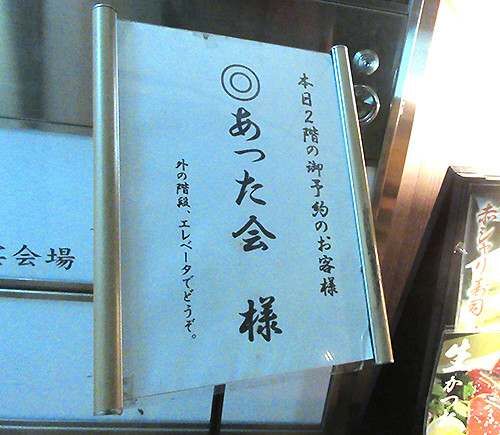 本日2階の御予約のお客様
◎あった会 様
外の階段、エレベータでどうぞ。
会場
赤シャリ寿司
生かつ